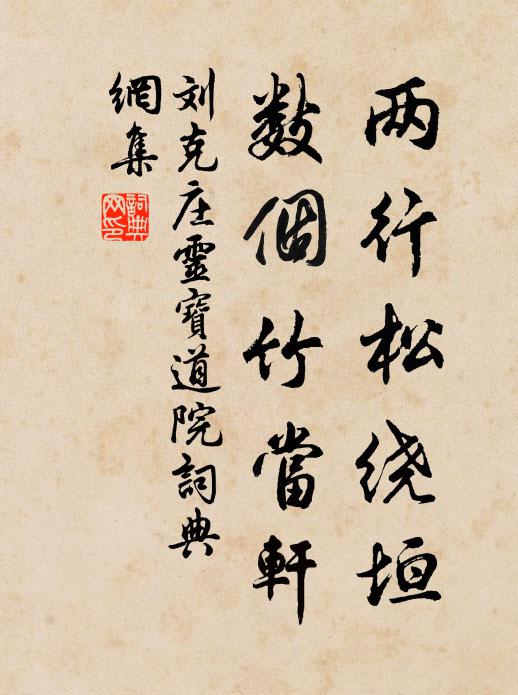 两行松绕垣
数個竹當軒
刘克庄靈寶道院詞典
網集
詞典
网印